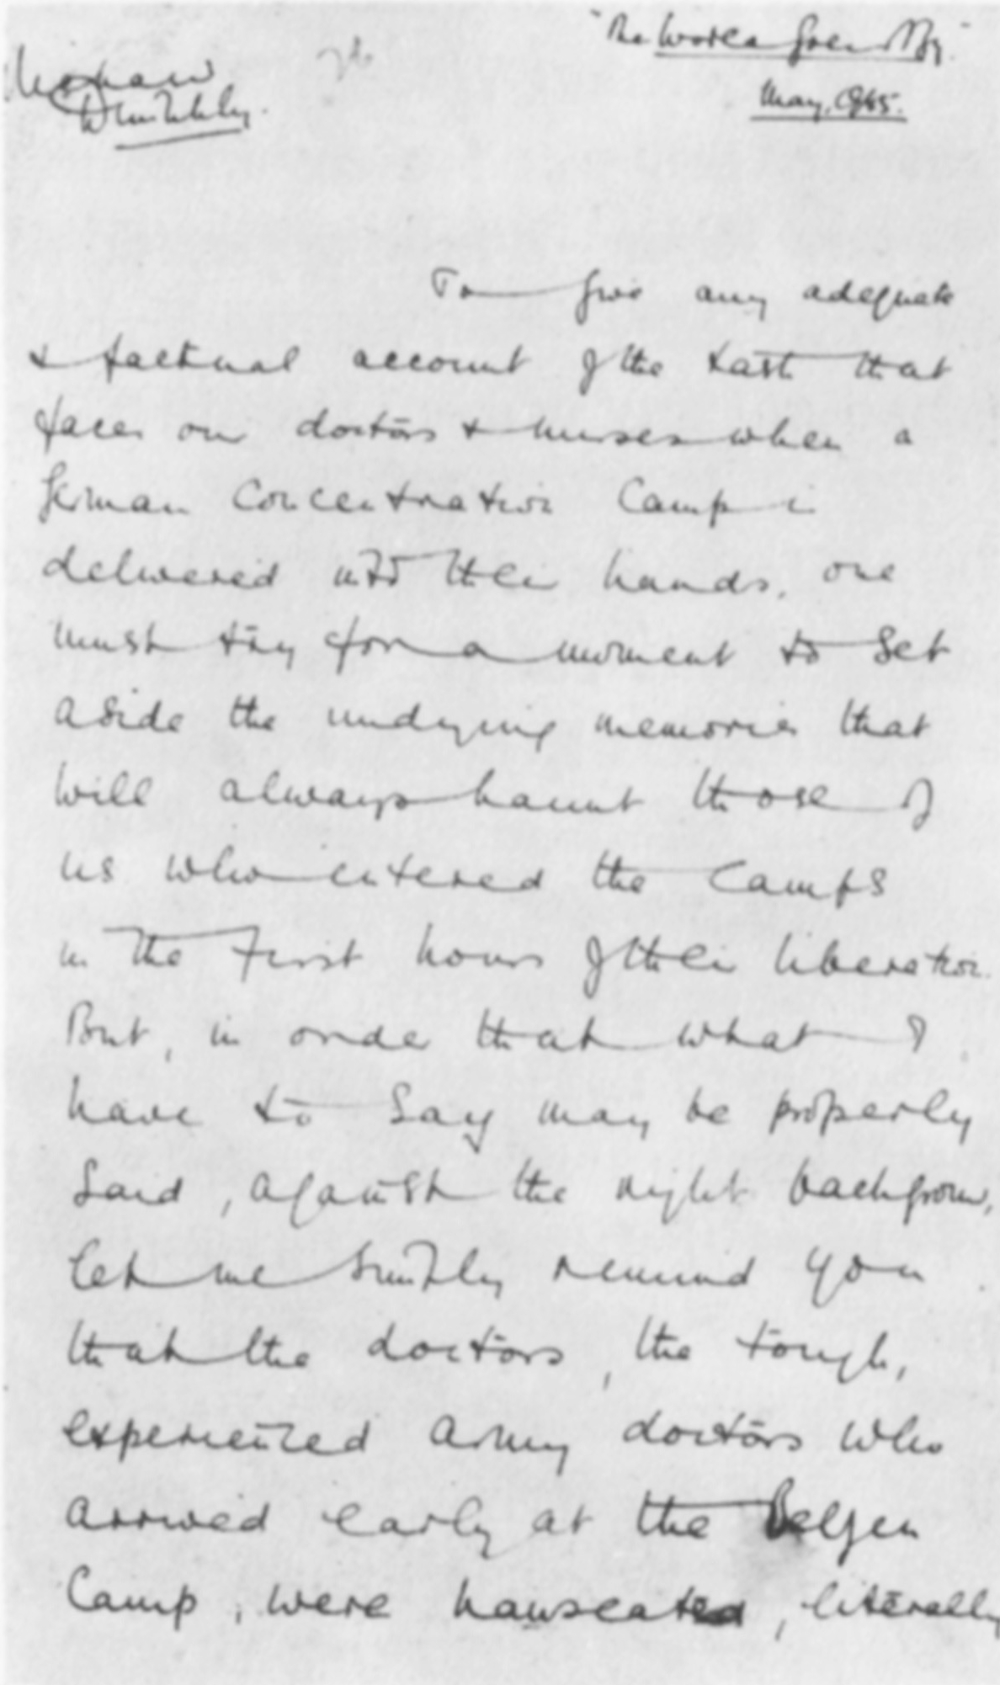 "The World Goes By"
May, 1945.
Dimbleby.
To give any adequate
& factual account of the task that
faces our doctors & nurses when a
German Concentration Camp is
delivered into their hands, one
must try for a moment to set
aside the undying memories that
will always haunt those of
us who entered the camps
in the first hours of their liberation.
But, in order that what I
have to say may be properly
said, against the right backgroun,
let me simply remind you
that the doctors, the tough,
experienced army doctors who
arrived early at the Belsen
Camp, were nauseated, literally